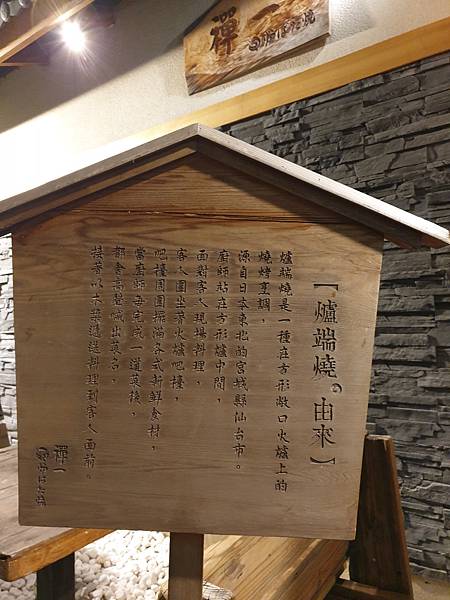 禪一
【爐端燒。由來】
爐端燒是一種在方形敞口火爐上的
燒烤烹調，
源自日本東北的宮城縣仙台市。
廚師站在方形爐中間，
面對客人現場料理，
客人圍坐著火爐吧檯，
吧檯周圍擺滿各式新鮮食材，
當廚師每完成一道菜後，
都會高聲喊出菜名，
接著以木槳遞送料理到客人面前。
禪一